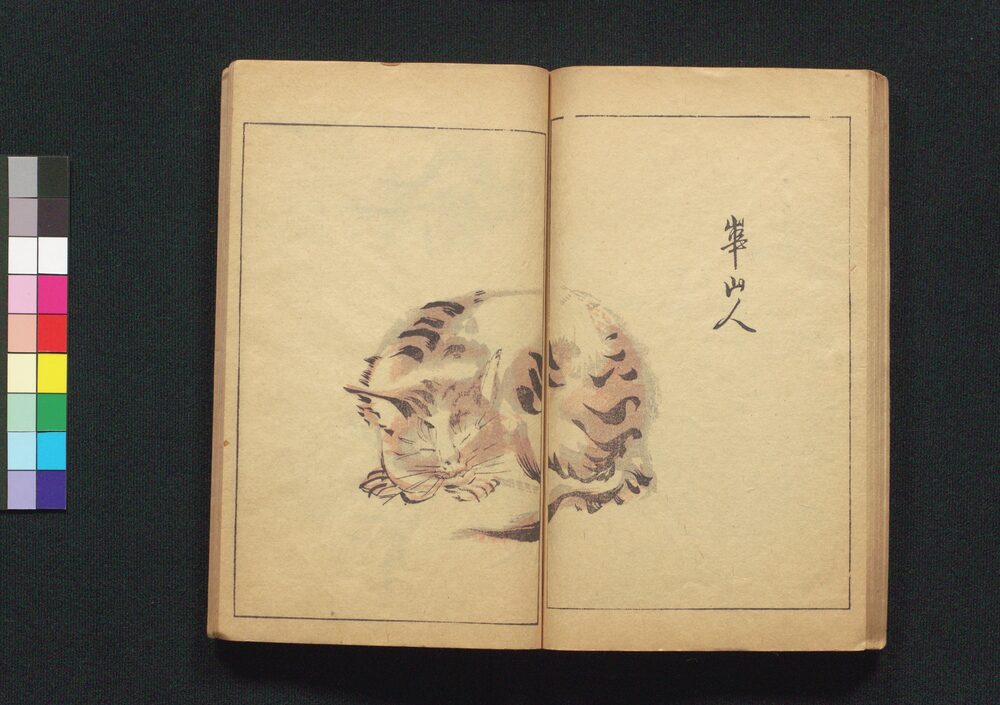 崋山人